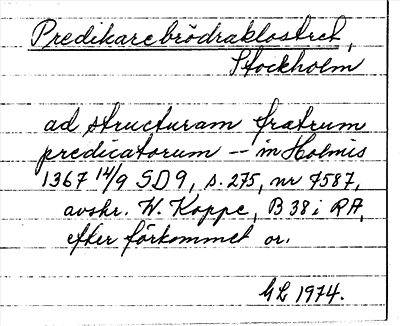 Predikarebrödraklostret,
Stockholm
ad structuram fratrum
predicatorum -- in Holmis
1367 14/9 SD9, s. 275, nr 7587,
avskr. W. Koppe, B 38 i RA,
efter förkommet or.
GL 1974.